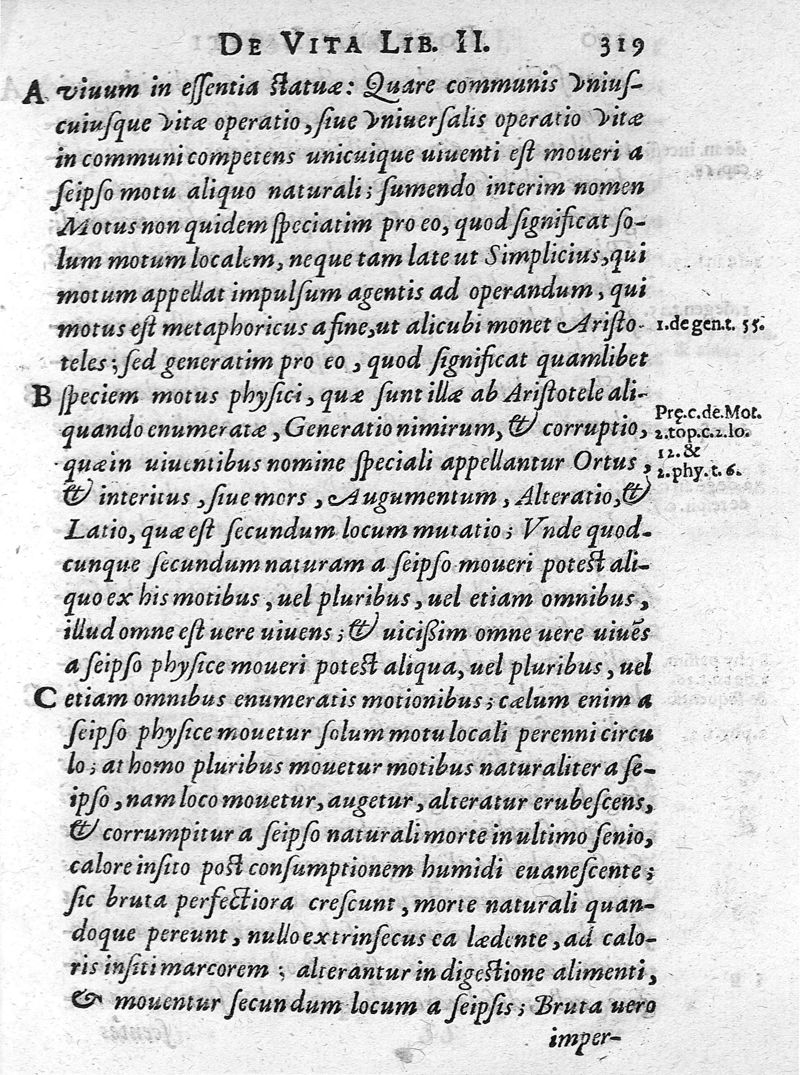 DE VITA LIB. II. 319
A viuum in eſſentia ſtatuæ: Quare communis Vniuſ-
cuiuſque Vitæ operatio, ſiue Vniuerſalis operatio Vitæ
in communi competens unicuique uiuenti eſt moueri a
ſeipſo motu aliquo naturali; ſumendo interim nomen
Motus non quidem ſpeciatim pro eo, quod ſignificat ſo-
lum motum localem, neque tam late ut Simplicius, qui
motum appellat impulſum agentis ad operandum, qui
motus eſt metaphoricus a fine, ut alicubi monet Ariſto-
1. de gen. t. 55.
teles; ſed generatim pro eo, quod ſignificat quamlibet
B ſpeciem motus phyſici, quæ ſunt illæ ab Ariſtotele ali-
Prę. c. de Mot.
quando enumeratæ, Generatio nimirum, & corruptio,
2. top. c. 2. lo.
12. &
quæ in uiuentibus nomine ſpeciali appellantur Ortus,
2. phy. t. 6.
& interitus, ſiue mors, Augumentum, Alteratio, &
Latio, quæ eſt ſecundum locum mutatio; Vnde quod-
cunque ſecundum naturam a ſeipſo moueri poteſt ali-
quo ex his motibus, uel pluribus, uel etiam omnibus,
illud omne eſt uere uiuens; & uicißim omne uere uiuēs
a ſeipſo phyſice moueri poteſt aliqua, uel pluribus, uel
C etiam omnibus enumeratis motionibus; cælum enim a
ſeipſo phyſice mouetur ſolum motu locali perenni circu
lo; at homo pluribus mouetur motibus naturaliter a ſe-
ipſo, nam loco mouetur, augetur, alteratur erubeſcens,
& corrumpitur a ſeipſo naturali morte in ultimo ſenio,
calore inſito poſt conſumptionem humidi euaneſcente;
ſic bruta perfectiora creſcunt, morte naturali quan-
doque pereunt, nullo extrinſecus ea lædente, ad calo-
ris inſiti marcorem; alterantur in digeſtione alimenti,
& mouentur ſecundum locum a ſeipſis; Bruta uero
imper-